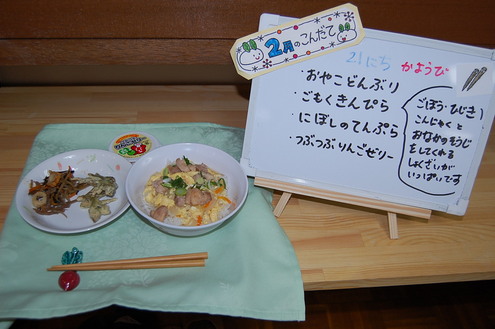 2月のこんだて
21にち かようび
・おやこどんぶり
・ごもくきんぴら
・にぼしのてんぷら
・つぶつぶりんごゼリー
ごぼう・ひじき
こんにゃくと
おなかのそうじ
をしてくれる
しょくざいが
いっぱいです